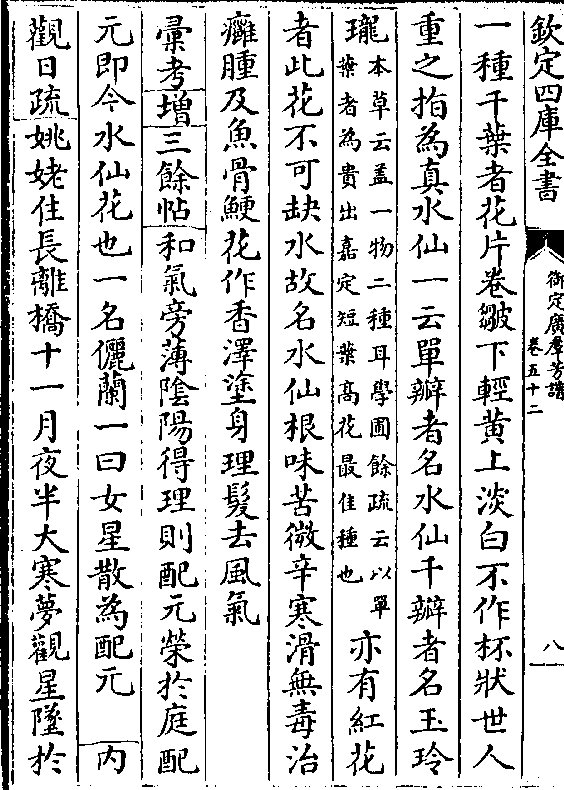 欽定四庫全書
御定廣羣芳譜
卷五十二
八
一種千葉者花片卷皺下輕黃上淡白不作杯狀世人
重之指為真水仙一云單瓣者名水仙千瓣者名玉玲
瓏本草云盖一物二種耳學圃餘疏云以單
葉者為貴出嘉定短葉高花最佳種也亦有紅花
者此花不可缺水故名水仙根味苦微辛寒滑無毒治
癰腫及魚骨鯁花作香澤塗身理髮去風氣
彚考增三餘帖和氣旁薄陰陽得理則配元榮於庭配
元即今水仙花也一名儷蘭一曰女星散為配元　内
觀日疏姚姥住長離橋十一月夜半大寒夢觀星墜於